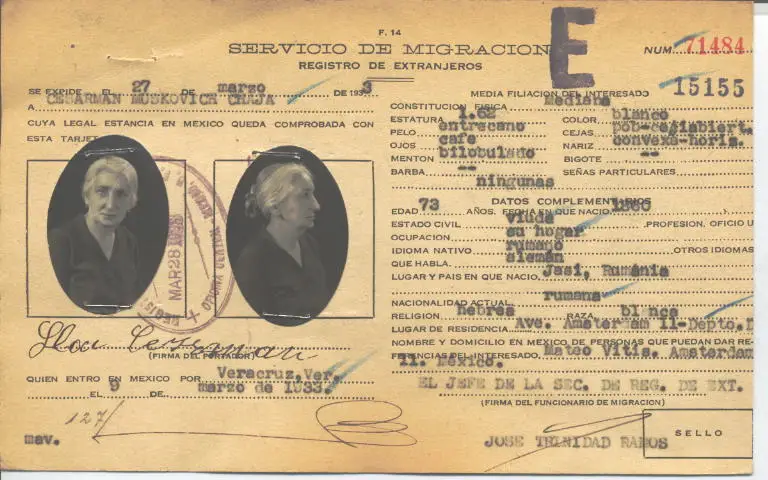 F. 14
SERVICIO DE MIGRACION
REGISTRO DE EXTRANJEROS
E
NUM. 71484
15155
SE EXPIDE EL 27 DE marzo DE 1933
A CESARMAN MUSKOVICH CHAJA
CUYA LEGAL ESTANCIA EN MEXICO QUEDA COMPROBADA CON
ESTA TARJETA
MAR 28 1933
(FIRMA DEL PORTADOR)
QUIEN ENTRO EN MEXICO POR Veracruz, Ver.
EL 9 DE marzo de 1933.
127/
mav.
MEDIA FILIACION DEL INTERESADO
CONSTITUCION FISICA Mediana
ESTATURA 1.62 COLOR blanco
PELO entrecano CEJAS pob-cejiabiert.
OJOS cafe NARIZ convexa-horiz.
MENTON bilobulado BIGOTE --
BARBA -- SEÑAS PARTICULARES
ningunas
DATOS COMPLEMENTARIOS
EDAD 73 AÑOS. FECHA EN QUE NACIO 1860
ESTADO CIVIL viuda PROFESION, OFICIO U
OCUPACION su hogar
IDIOMA NATIVO rumano OTROS IDIOMAS
QUE HABLA aleman
LUGAR Y PAIS EN QUE NACIO Jasi, Rumania
NACIONALIDAD ACTUAL rumana
RELIGION hebrea RAZA blnca
LUGAR DE RESIDENCIA Ave. Amsterdam 11-Depto.
NOMBRE Y DOMICILIO EN MEXICO DE PERSONAS QUE PUEDAN DAR RE-
FERENCIAS DEL INTERESADO Mateo Vitis. Amsterdam
11. México.
EL JEFE DE LA SEC. DE REG. DE EXT.
(FIRMA DEL FUNCIONARIO DE MIGRACION)
JOSE TRINIDAD RAMOS
SELLO